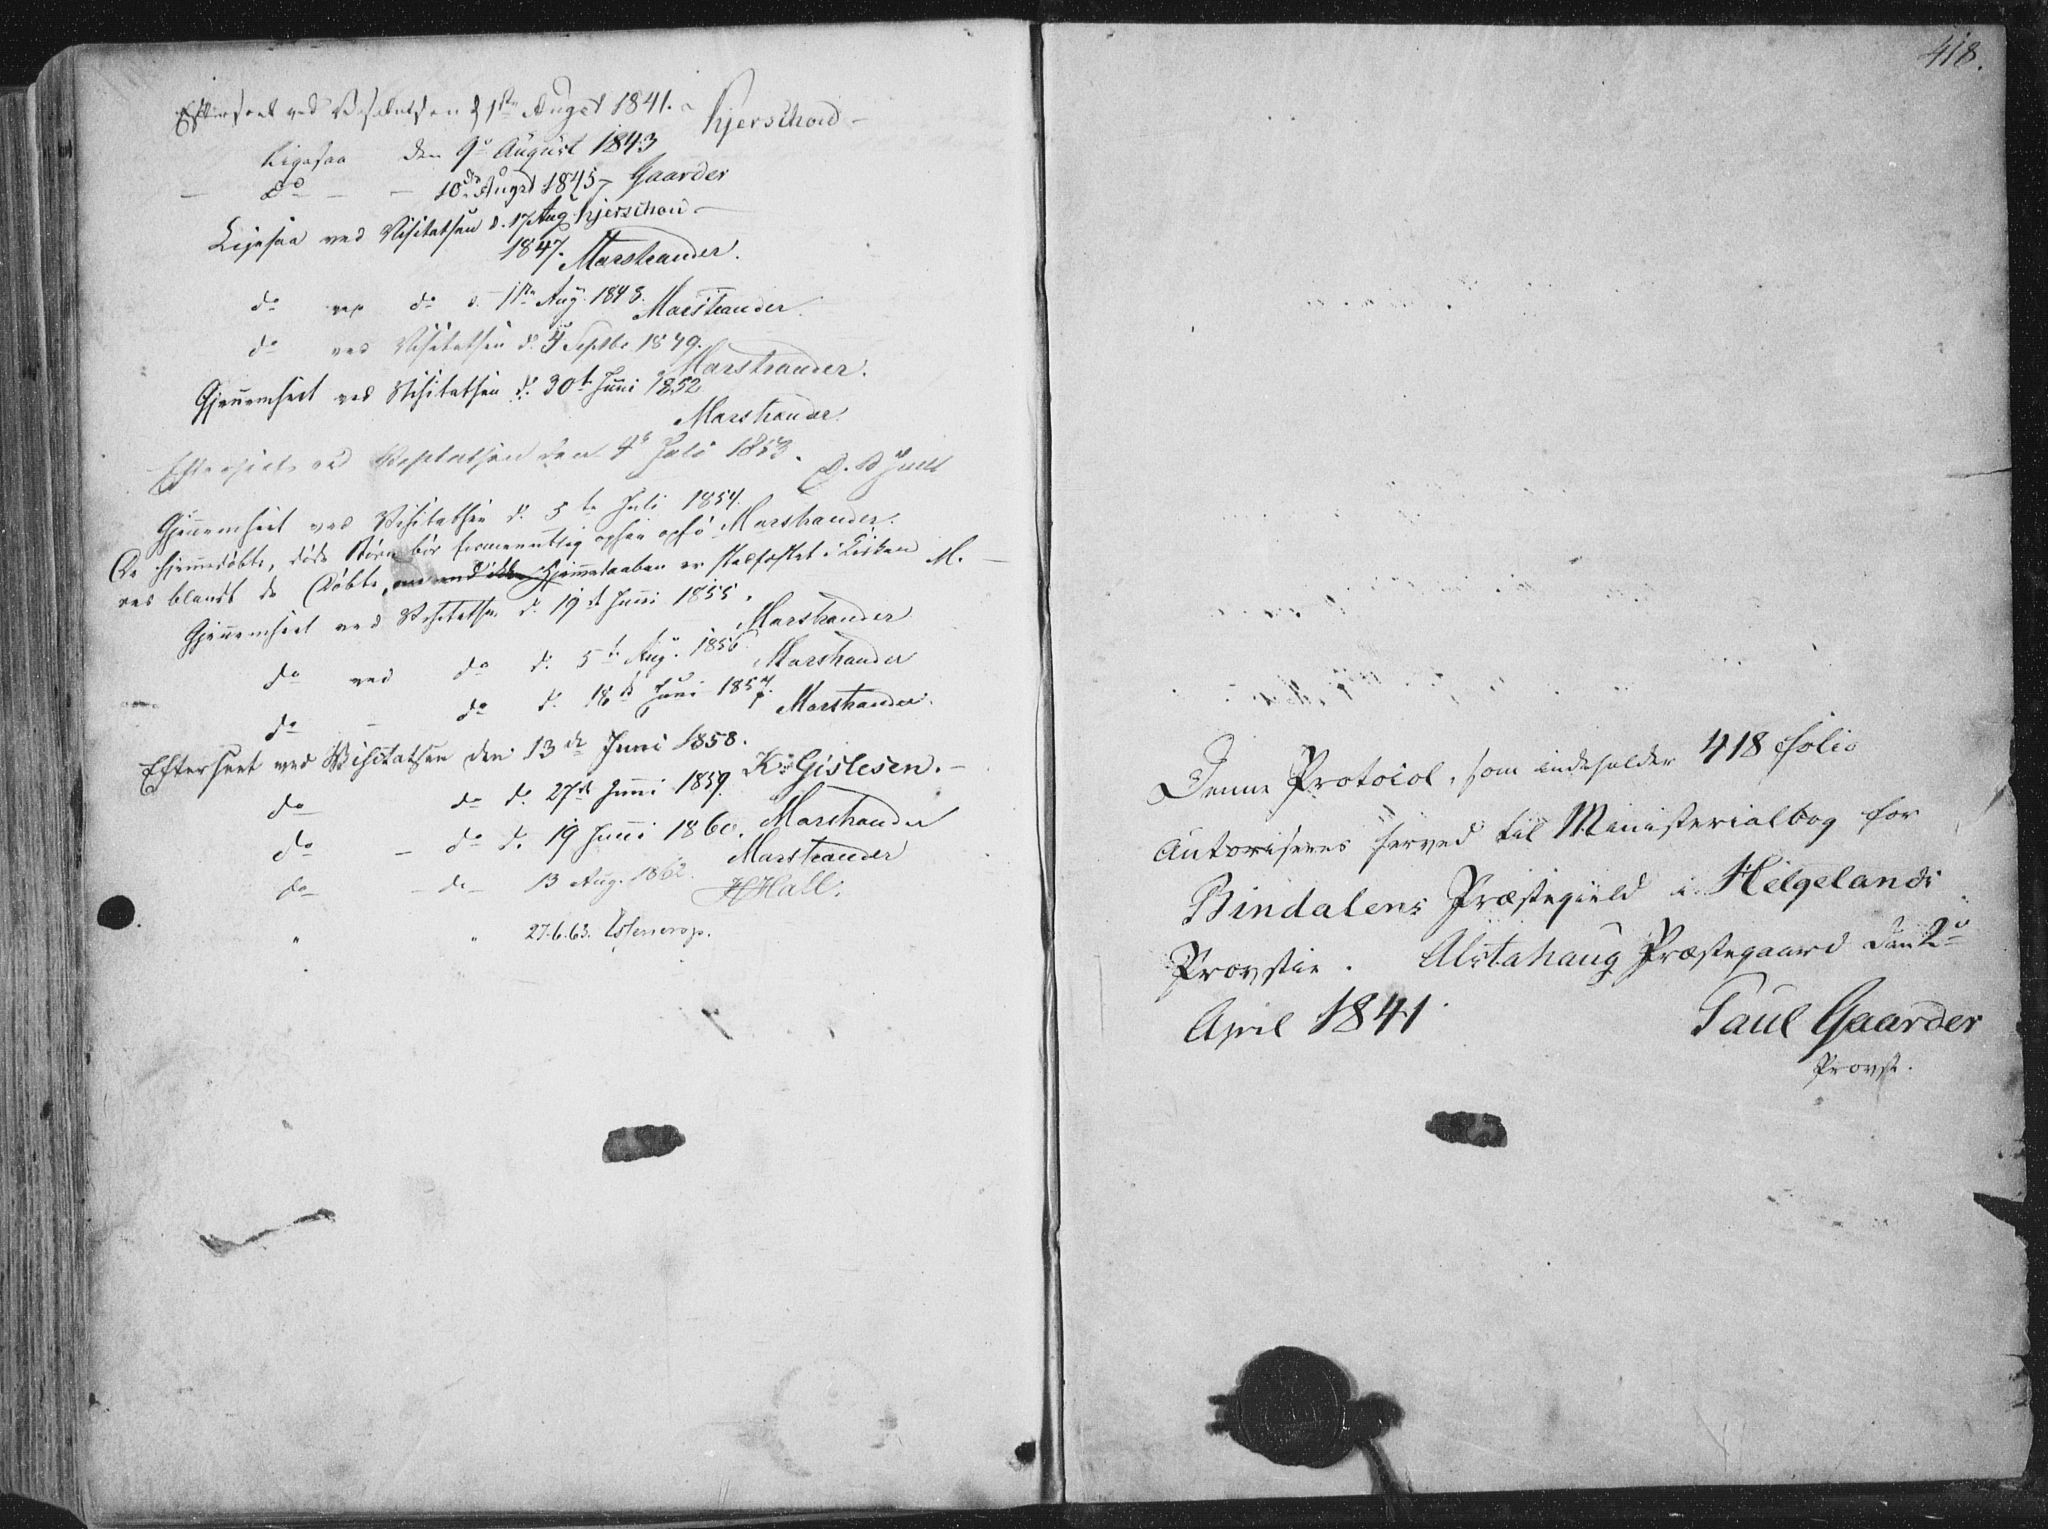 Efterseet ved Visitatsen d 1ste Augst 1841. Kjerschow
Ligesaa den 9de August 1843
Gaarder
do 10de Augst 1845
Kjerschow
Ligesaa ved Visitatsen d. 17 Aug.
1847. Marstrander.
do ved do d. 1ste Aug. 1848. Marstrander.
do ved Visitatsen d. 4 Septbr 1849.
Marstrander.
Gjennemseet ved Visitatsen d. 30te Juni 1852
Marstrander.
Efterseet ved Visitatsen den 4de Juli 1853.
Gjennemseet ved Visitatsen d. 5te Juli 1854. Marstrander.
De hjemmedøbte, døde Børn bør formeentlig ogsaa opfø-
res blandt de Døbte, Hjemmedaaben er stadfæstet i Kirken M.
Gjennemseet ved Visitatsen d. 19de Juni 1855.
Marstrander
do ved do d. 5te Aug. 1856 Marstrander
do - do d. 18de Juni 1857. Marstrander.
Efterseet ved Visitatsen den 13de Juni 1858.
K. Gislesen.
do do d. 27de Juni 1859. Marstrander
do - do d. 19 Juni 1860. Marstrander
do - do 13 Aug. 1862. HHall.
" " 27.6.63.
418.
Denne Protocol, som indeholder 418 Folio
autoriseres herved til Ministerialbog for
Bindalens Præstegield i Helgelands
Provstie. Alstahaug Præstegaard den 2de
April 1841 Paul Gaarder
Provst.